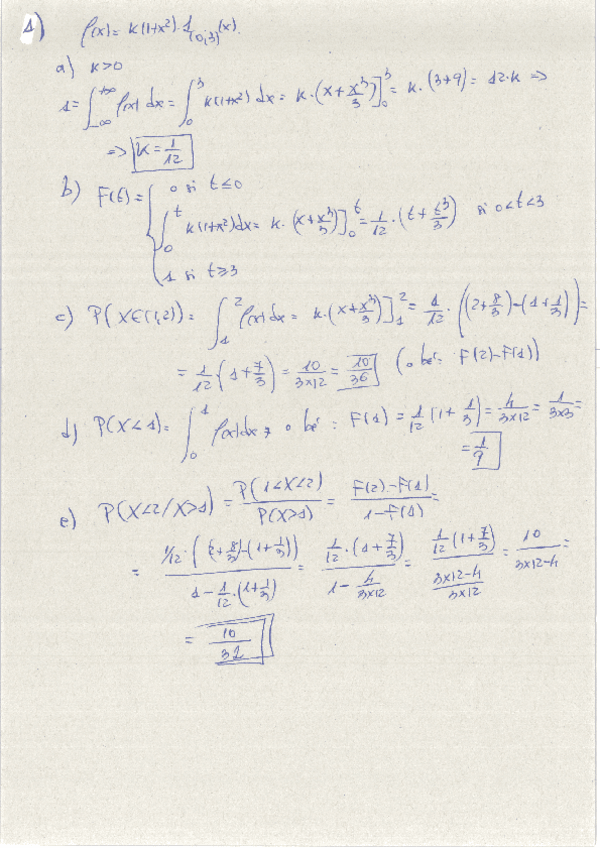 1) f(x) = k(1+x²)·1₍₀,₃₎(x).
a) k>0
1 = ∫_{-∞}^{+∞} f(x) dx = ∫_0^3 k(1+x²) dx = k·(x + x³/3)]_0^3 = k·(3+9) = 12·k =>
=> k = 1/12
b) F(t) = { 0 si t ≤ 0
∫_0^t k(1+x²)dx = k·(x + x³/3)]_0^t = 1/12·(t + t³/3) si 0<t<3
1 si t ≥ 3
c) P(X∈(1,2)) = ∫_1^2 f(x)dx = k·(x + x³/3)]_1^2 = 1/12·((2+8/3)-(1+1/3)) =
= 1/12 (1+7/3) = 10/(3x12) = 10/36 (o bé: F(2)-F(1))
d) P(X<1) = ∫_0^1 f(x)dx o bé: F(1) = 1/12 (1+1/3) = 4/(3x12) = 1/(3x3) =
= 1/9
e) P(X<2/X>1) = P(1<X<2)/P(X>1) = (F(2)-F(1))/(1-F(1)) =
= (1/12·((2+8/3)-(1+1/3)))/(1-1/12·(1+1/3)) = (1/12·(1+7/3))/(1-4/(3x12)) = (1/12(1+7/3))/((3x12-4)/(3x12)) = 10/(3x12-4) =
= 10/32